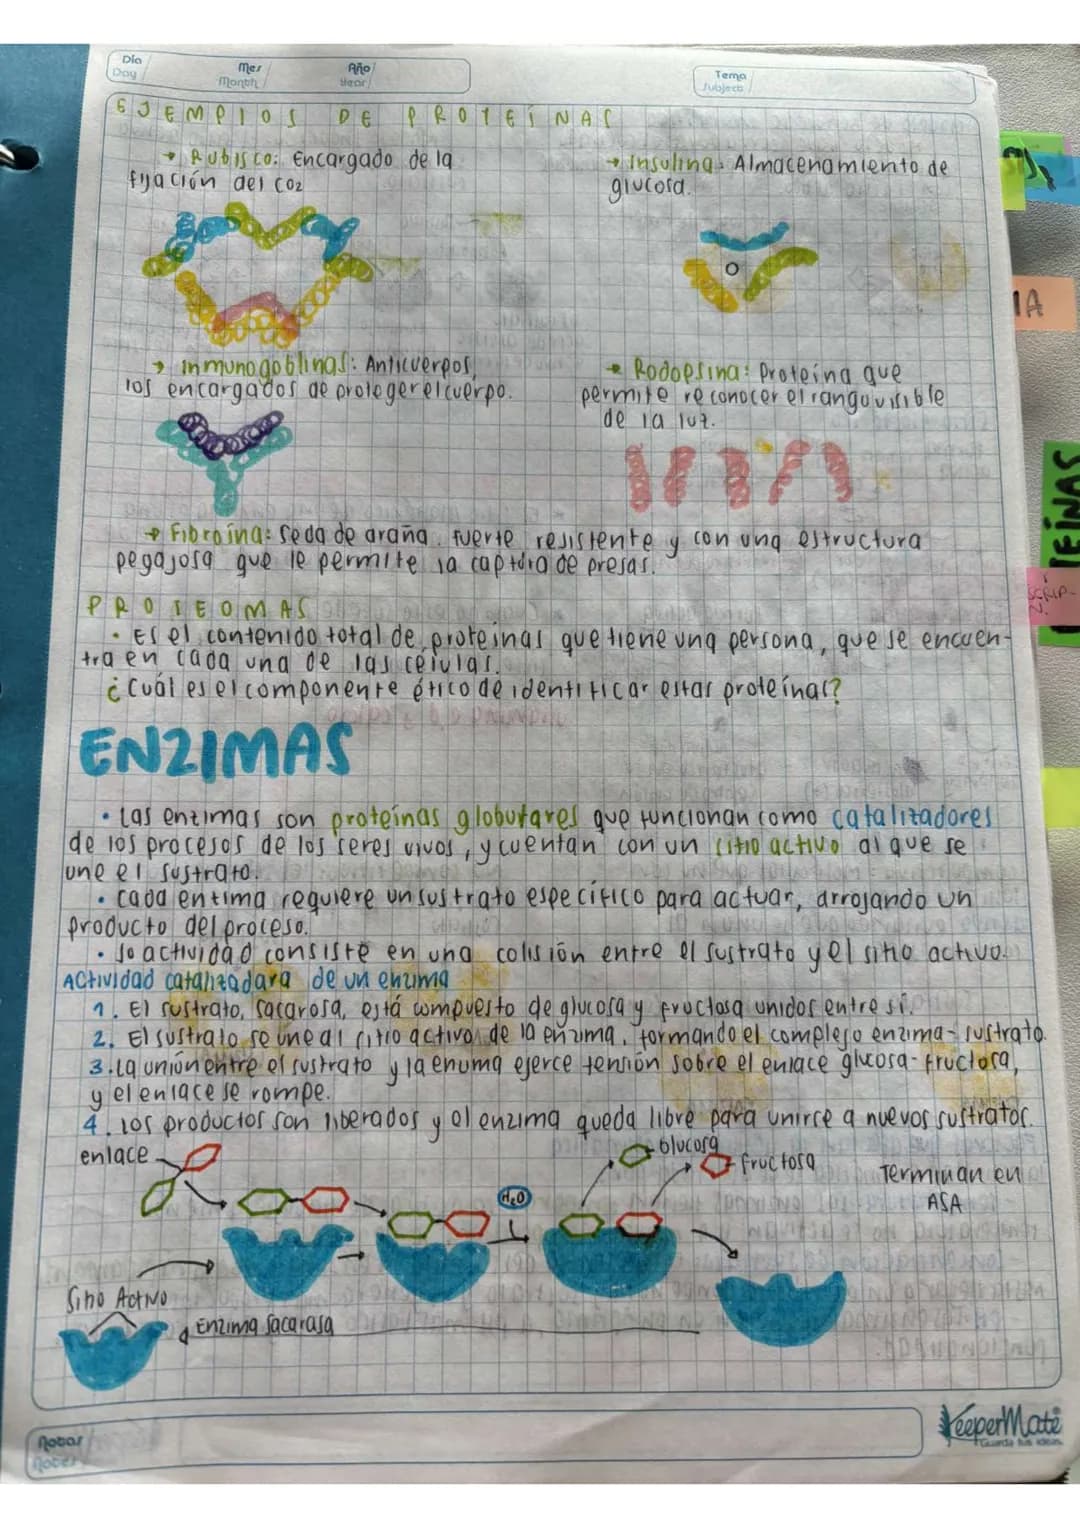 Día
Day
Mes
Month
Año
Year
Tema
Subject
EJEMPLOS DE PROTEÍNAS
→ Rubisco: Encargado de la
fijación del CO2
→ Insulina: Almacenamiento de
glucosa.
→ Inmunogoblinas: Anticuerpos,
los encargados de proteger el cuerpo.
→ Rodopsina: Proteína que
permite reconocer el rango visible
de la luz.
→ Fibroína: Seda de araña. Fuerte, resistente y con una estructura
pegajosa que le permite la captura de presas.
PROTEOMAS
• Es el contenido total de proteínas que tiene una persona, que se encuen-
tra en cada una de las células.
¿Cuál es el componente ético de identificar estas proteínas?
ENZIMAS
• Las enzimas son proteínas globulares que funcionan como catalizadores
de los procesos de los seres vivos, y cuentan con un sitio activo al que se
une el sustrato.
• Cada enzima requiere un sustrato específico para actuar, arrojando un
producto del proceso.
• Su actividad consiste en una colisión entre el sustrato y el sitio activo.
Actividad catalizadara de un enzima
1. El sustrato, sacarosa, está compuesto de glucosa y fructosa unidos entre sí.
2. El sustrato se une al sitio activo de la enzima, formando el complejo enzima-sustrato.
3. La unión entre el sustrato y la enzima ejerce tensión sobre el enlace glucosa-fructosa,
y el enlace se rompe.
4. Los productos son liberados y el enzima queda libre para unirse a nuevos sustratos.
enlace
Glucosa
fructosa
Terminan en
ASA
H2O
Sitio Activo
Enzima Sacarasa
Notas
Notes
KeeperMate
Guarda tus ideas
IA
EÍNAS
SCRIP-
N.